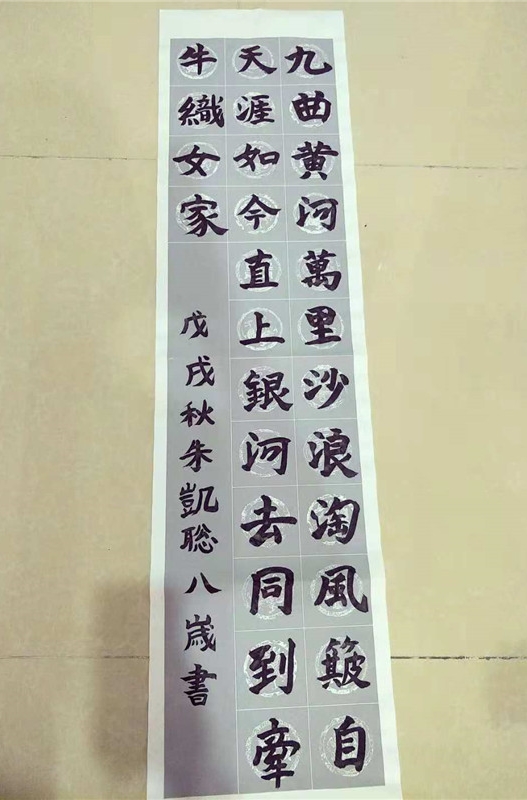 九曲黄河萬里沙浪淘風簸自
天涯如今直上銀河去同到牽
牛織女家
戊戌秋朱凱聪八歲書